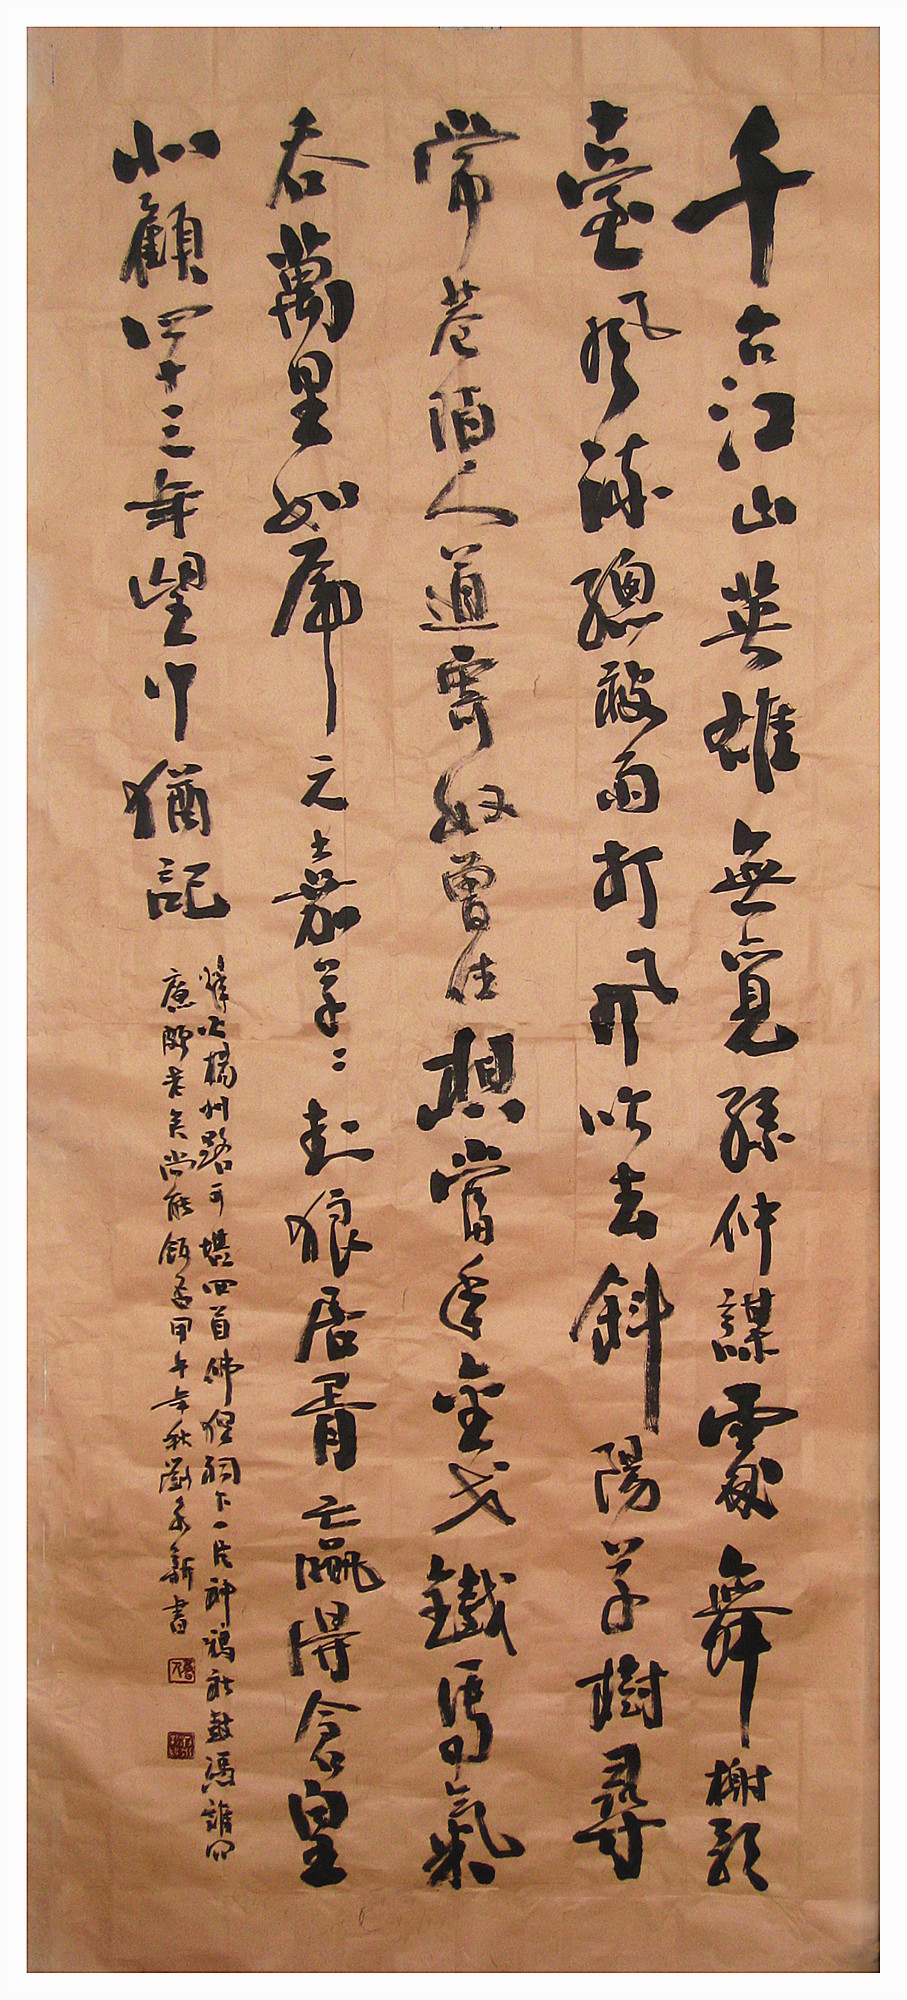 千古江山英雄無覓孫仲謀處舞榭歌
臺風流總被雨打風吹去斜陽草樹尋
常巷陌人道寄奴曾住想當年金戈鐵馬氣
吞萬里如虎元嘉草々封狼居胥贏得倉皇
北顧四十三年望中猶記
烽火楊州路可堪回首佛狸祠下一片神鴉社鼓馮誰問
廉頗老矣尚能飯否甲午年秋劉新書